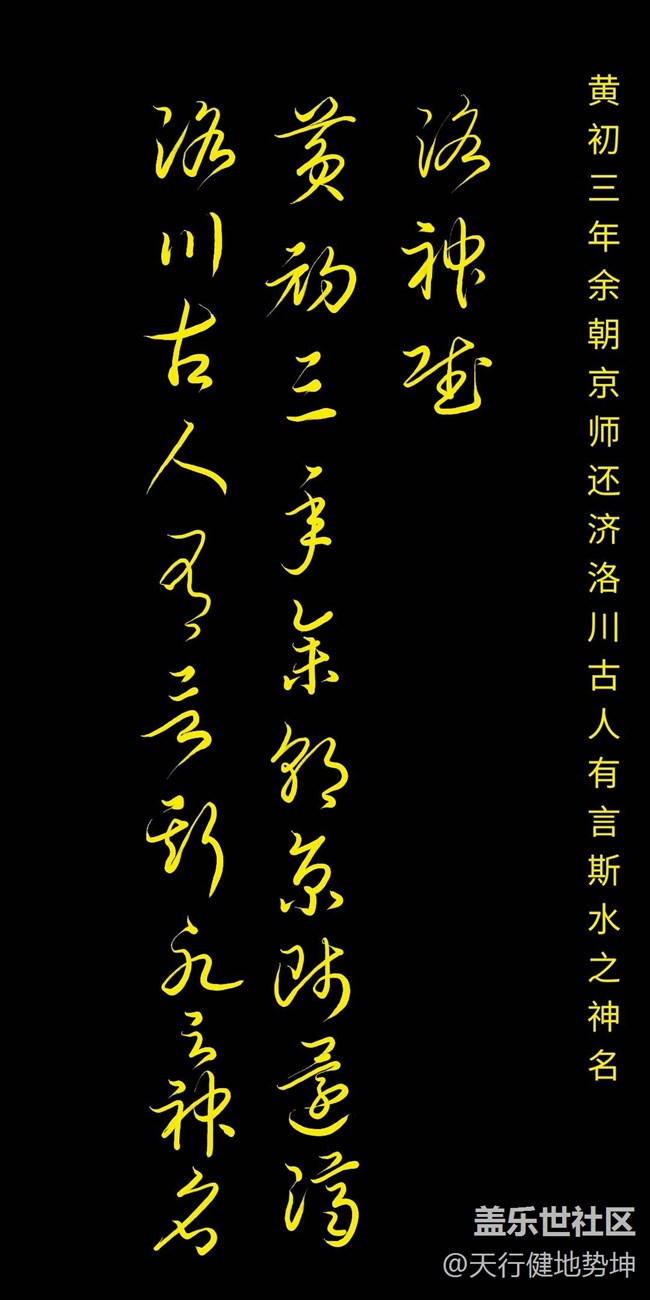 黄初三年余朝京师还济洛川古人有言斯水之神名
洛神赋
黄初三年余朝京师还济
洛川古人有言斯水之神名
盖乐世社区
@天行健地势坤